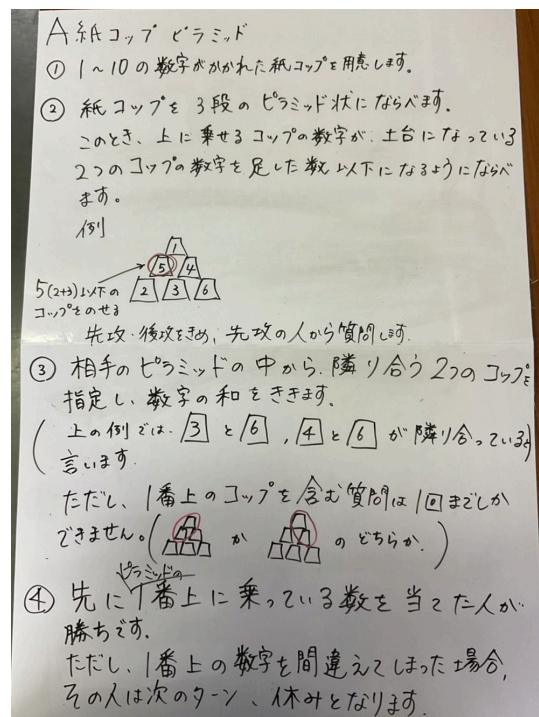 A 紙コップ ピラミッド
① 1〜10の数字がかかれた紙コップを用意します。
② 紙コップを3段のピラミッド状にならべます。
このとき、上に乗せるコップの数字が、土台になっている
2つのコップの数字を足した数以下になるようにならべ
ます。
例
1
5 4
2 3 6
5(2+3)以下の
コップをのせる
先攻・後攻をきめ、先攻の人から質問します。
③ 相手のピラミッドの中から、隣り合う2つのコップを
指定し、数字の和をききます。
(上の例では、3と6,4と6が隣り合っていると
言います)
ただし、1番上のコップを含む質問は1回までしか
できません。( か のどちらか。)
ピラミッドの
④ 先に1番上に乗っている数を当てた人が
勝ちです。
ただし、1番上の数字を間違えてしまった場合、
その人は次のターン、休みとなります。